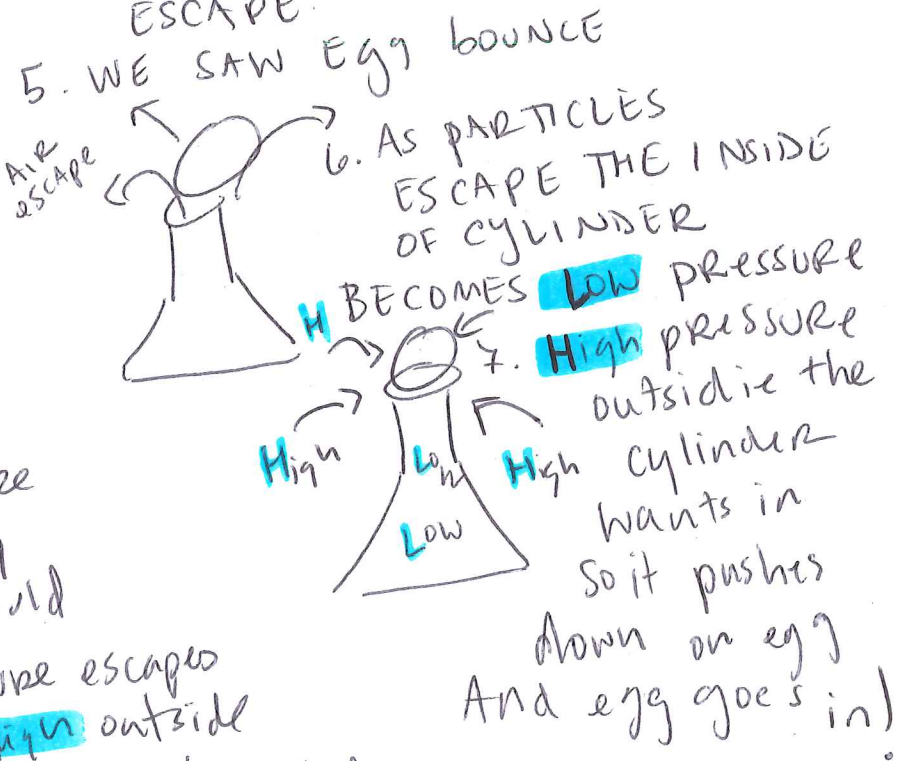 ESCAPE.
5. WE SAW Egg bOUNCE
AIR
escape
6. As pARTICLES
ESCAPE THE INSIDE
OF CYLINDER
BECOMES LOW pRessuRe
H
7. High pRessuRe
outsidie the
cylinder
wants in
so it pushes
down on egg
And egg goes in!
High
High
Low
Low
escapes
outside